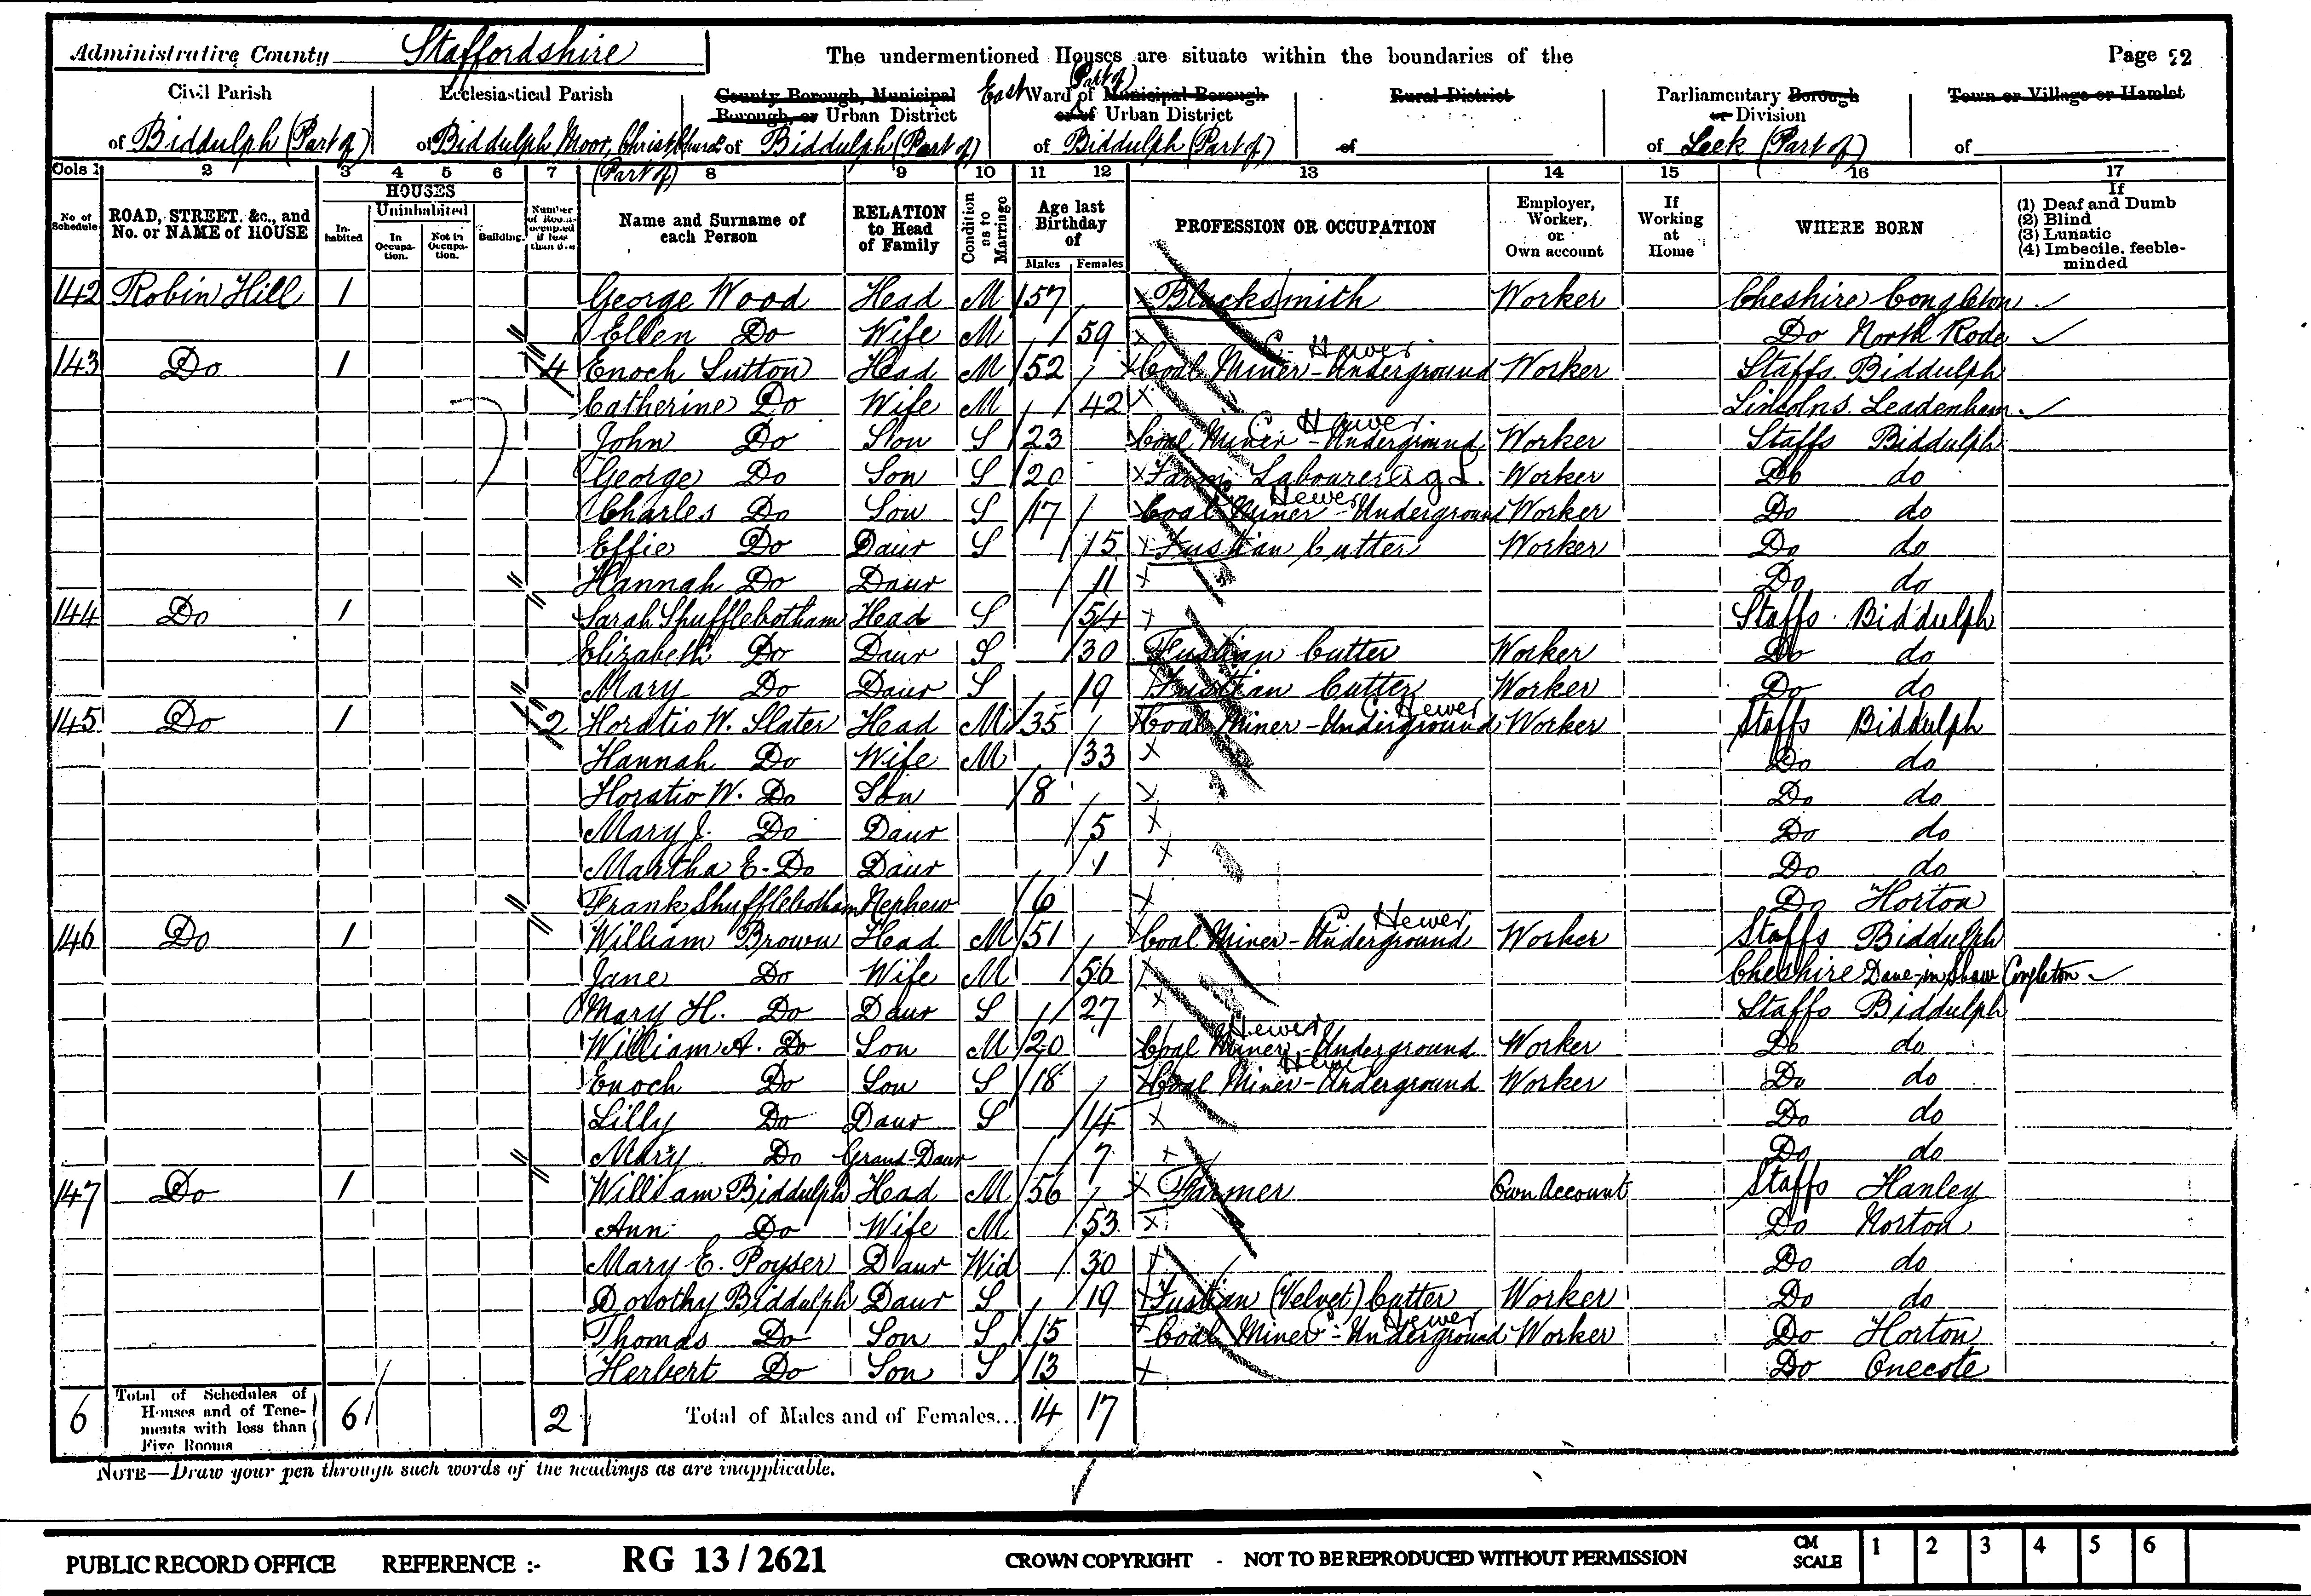 Administrative County Staffordshire The undermentioned Houses are situate within the boundaries of the Page 22
Civil Parish of Biddulph (Part of)
Ecclesiastical Parish of Biddulph Moor, Christ Church (Part of)
County Borough, Municipal Borough, or Urban District of Biddulph (Part of)
East (Part of) Ward of Municipal Borough or of Urban District of Biddulph (Part of)
Rural District of
Parliamentary Borough or Division of Leek (Part of)
Town or Village or Hamlet of
Cols 1 2 3 4 5 6 7 8 9 10 11 12 13 14 15 16 17
No of Schedule
ROAD, STREET, &c., and No. or NAME of HOUSE
HOUSES
Inhabited
Uninhabited
In Occupation.
Not in Occupation.
Building.
Number of Rooms occupied if less than five
Name and Surname of each Person
RELATION to Head of Family
Condition as to Marriage
Age last Birthday of
Males Females
PROFESSION OR OCCUPATION
Employer, Worker, or Own account
If Working at Home
WHERE BORN
If
(1) Deaf and Dumb
(2) Blind
(3) Lunatic
(4) Imbecile, feeble-minded
142 Robin Hill 1 George Wood Head M 57 Blacksmith Worker Cheshire Congleton
Ellen Do Wife M 59 Do North Rode
143 Do 1 4 Enoch Sutton Head M 52 Coal Miner - Underground C. Hewer Worker Staffs. Biddulph
Catherine Do Wife M 42 Lincolns. Leadenham
John Do Son S 23 Coal Miner - Underground C. Hewer. Worker Staffs Biddulph
George Do Son S 20 Farm Labourer Ag L. Worker Do do
Charles Do Son S 17 Coal Miner - Underground Hewer Worker Do do
Effie Do Daur S 15 Fustian Cutter Worker Do do
Hannah Do Daur 11 Do do
144 Do 1 Sarah Shufflebotham Head S 54 Staffs Biddulph
Elizabeth Do Daur S 30 Fustian Cutter Worker Do do
Mary Do Daur S 19 Fustian Cutter Worker Do do
145 Do 1 2 Horatio W. Slater Head M 35 Coal Miner - Underground C. Hewer Worker Staffs Biddulph
Hannah Do Wife M 33 Do do
Horatio W. Do Son 8 Do do
Mary J. Do Daur 5 Do do
Martha E. Do Daur 1 Do do
Frank Shufflebotham Nephew 6 Do Horton
146 Do 1 William Brown Head M 51 Coal Miner - Underground C Hewer Worker Staffs Biddulph
Jane Do Wife M 56 Cheshire Dane-in-Shaw Congleton
Mary H. Do Daur S 27 Staffs Biddulph
William A. Do Son M 20 Coal Miner - Underground Hewer Worker Do do
Enoch Do Son S 18 Coal Miner - Underground Hewer Worker Do do
Lilly Do Daur S 14 Do do
Mary Do Grand-Daur 7 Do do
147 Do 1 William Biddulph Head M 56 Farmer Own Account Staffs Hanley
Ann Do Wife M 53 Do Norton
Mary E. Poyser Daur Wid 30 Do do
Dorothy Biddulph Daur S 19 Fustian (Velvet) Cutter Worker Do do
Thomas Do Son S 15 Coal Miner - Underground C Hewer Worker Do Horton
Herbert Do Son S 13 Do Onecote
6 Total of Schedules of Houses and of Tenements with less than Five Rooms 6 2 Total of Males and of Females... 14 17
NOTE—Draw your pen through such words of the headings as are inapplicable.
PUBLIC RECORD OFFICE REFERENCE :- RG 13/2621 CROWN COPYRIGHT - NOT TO BE REPRODUCED WITHOUT PERMISSION CM SCALE 1 2 3 4 5 6